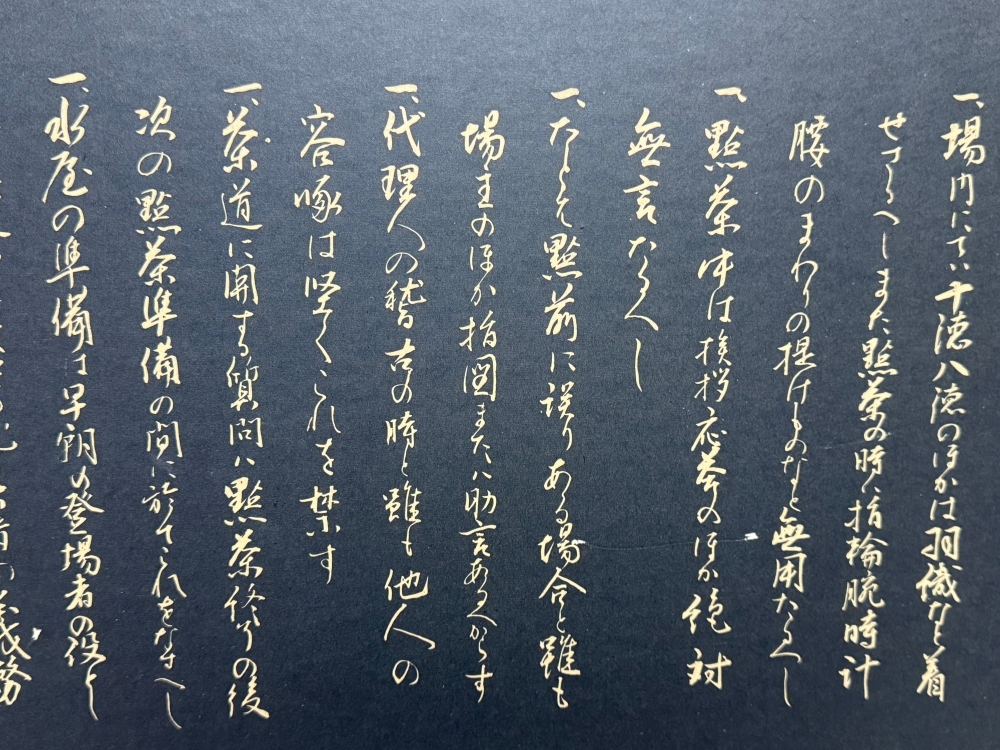 一、場内にてハ十徳八徳のほかは羽織など着
せざるべしまた點茶の時ハ指輪腕時計
腰のまわりの提げものなど無用たるべし
一、點茶中は挨拶応答のほか絶対
無言たるべし
一、たとえ點前に誤りある場合と雖も
場主のほか指図またハ助言あるべからず
一、代理人への稽古の時と雖も他人の
容喙は堅くこれを禁ず
一、茶道に関する質問ハ點茶終りの後
次の點茶準備の間に於てこれをなすべし
一、水屋の準備は早朝の登場者の役と
義務